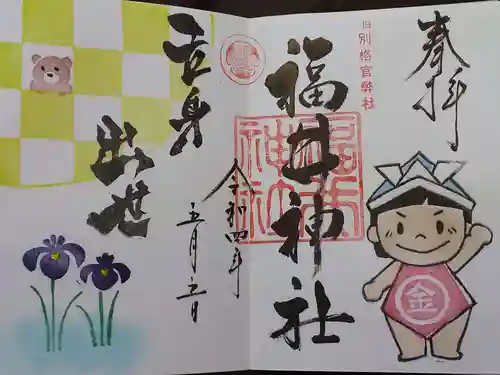 奉拝
旧別格官幣社
福井神社
福井
神社
令和四年
五月五日
立身
出世
金